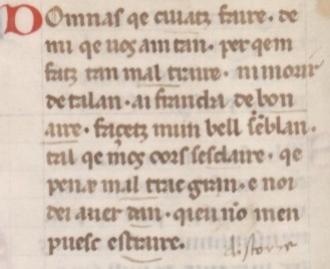 Domnas qe cuiatz faire · de
mi qe uos am tan · per qem
fatz tan mal traire · ni morir
de talan · ai francha de bon
aire · façetz mun bell sēblan ·
tal qe mos cors sesclaire · qe
pena mal trac gran · e noi
dei auer dan · qieu nō men
puesc estraire .